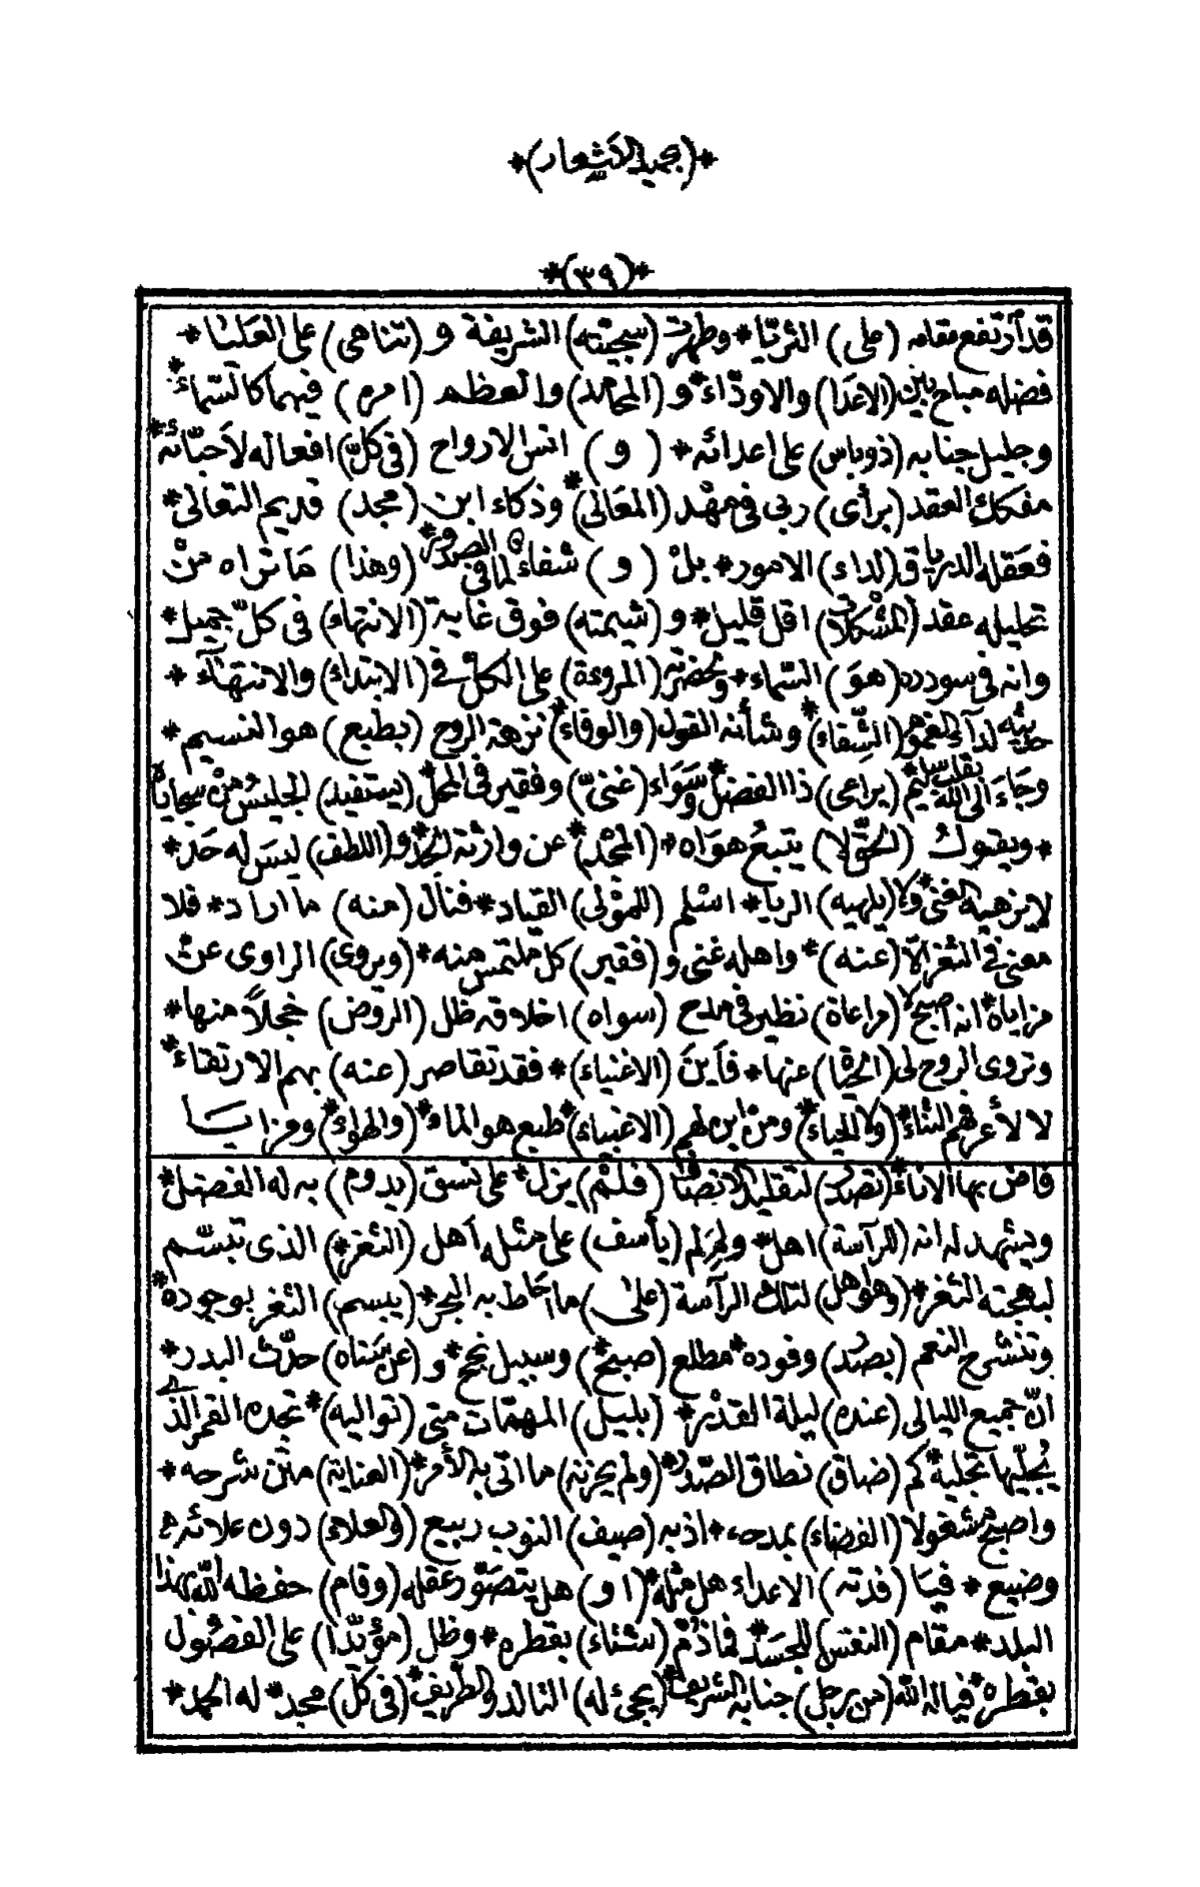 *(بحميد الاشعار)*
*(٣٩)*
قد ارتفع مقامه (على) الثريّا* وظهرت (سجيته) الشريفة و (تناهى) على العليا*
فضله مباح بين (الاعدا) والاودّاء* و (المحامد) والعظم (امره) فيهما كالسّماء*
وجليل جنابه (ذوباس) على اعدائه* (و) انس الارواح (فى كلّ) افعاله لاحبّائه*
مفكك العقد (برأى) ربى فى مهد (المعالى)* وذكاء ابن (مجد) قديم التعالى*
فعقله الدرياق (لداء) الامور* بل (و) شفاء لما فى الصدور* (وهذا) ما تراه من
تحليله عقد (المشكلات) اقل قليل* و (شيمته) فوق غاية (الانتهاء) فى كلّ جميل*
وانه فى سودده (هو) السّماء* وبحضرته (المروءة) على الكل فى (الابتداء) والانتهاء*
حديثه لدآء الغموم (الشّفاء)* وشأنه القول (والوفاء)* نزهة الروح (بطبع) هو النسيم*
وجاء الى الله بقلب سليم* (يراعى) ذا الفضل* وسواء (غنىّ) وفقير فى المحل* (يستفيد) الجليس من سجاياه
*ويقول (الحقّ لا) يتبع هواه* (المجد)* عن وارثه الجد* و(اللطف) ليس له حد*
لا يزهيه الغنى* ولا (يلهيه) الريا* اسلم (للمولى) القياد* فنال (منه) ما اراد* فلا
معنى فى الثغر الّا (عنه)* واهله غنى و (فقير) كل ملتمس منه* (ويروى) الراوى عن
مزاياه* انه اصبح لا (مراعاة) نظير فى مدح (سواه) اخلاقه ظل (الروض) خجلاً منها*
وتروى الروح لى (الحيا) عنها* فاين (الاغنياء)* فقد تقاصر (عنه) بهم الارتقاء*
لا لأعرفهم الثناء* (ولا الحياء)* ومن اين لهم (الاغنياء)* طبع هو الماء* (والهواء)* ومزايا
فاض بها الاناء* (تصدّر) لتقليد الانصاف* (فلم) يزل* على نسق (يدوم) به له الفضل*
ويشهد له انه (للرآسة) اهل* ولم (يأسف) على مثله اهل (الثغر)* الذى تبسّم
لبهجته الثغر* (وها هو اهل) لتلك الرآسة (على) ما احاط به البحر* (يبسم) الثغر بوجوده*
وتنشرح النعم (بصدر) وفوده* مطلع (صبح)* وسبيل نجح* و (عن سناه) حدّث البدر*
انّ جميع الليالى (عنده) ليلة القدر* (بليل) المهمّات متى (تواليه)* تجده القمر الذى
يُجلّيها بتجليه* كم (ضاق) نطاق الصّدر* (ولم يحزنه) ما اتى به الأمر* (العناية) متن شرحه*
واصبح مشغولا (الفضاء) بمدحه* اذ به (صيف) النوب ربيع (والعلاء) دون علائه
وضيع* فيا (فدته) الاعداء هل مثله* (او) هل يتصوّر عقله (وقام) حفظه الله بهذا
البلد* مقام (النفس) للجسد* فما ذمّ (شتاء) بقطره* وظل (مؤبّدا) على الفصول
بقطره* فيا له الله (من رجل) جنابه الشريف* (يجئ له) التالد والطريف* (فى كل) مجد* له الحمد*